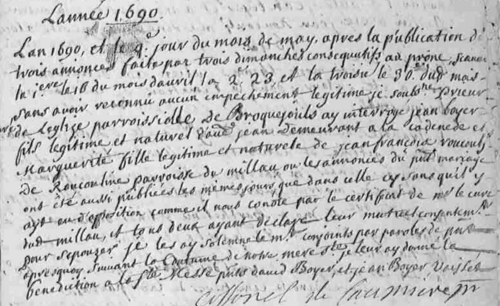 L'année 1690
L'an 1690, et le 9e jour du mois de may, apres la publication de
trois annonces faite par trois dimanches consequutifs au prône, scavoir
la 1ere le 16 du mois d'avril la 2e 23 et la troisie le 30 dud mois
sans avoir reconnu aucun empechement legitime je soubsne Prieur
de l'eglize parroissielle de Broquejouls ay interrogé jean boyer
fils legitime et naturel d'aud jean demeurant a la cadenede et
Marguerite fille legitime et naturele de jean francois
de Rouncoline parroisse du millau ou les annonces du pnt mariage
ont été aussi publiées les memes jours que dans celle cy sans quil y
ayt eu d'opposition comme il nous conste par le certificat de mr le curé
dud millau, et tous deux ayant declaré leur mutuel consentemt
pour sepouzer je les ay solemnelemt conjoints par paroles de pnt
apres quoy suivant la coutume de notre mere ste je leur ay donné la
benediction a la ste Messe pnts david Boyer, et jean Boyer